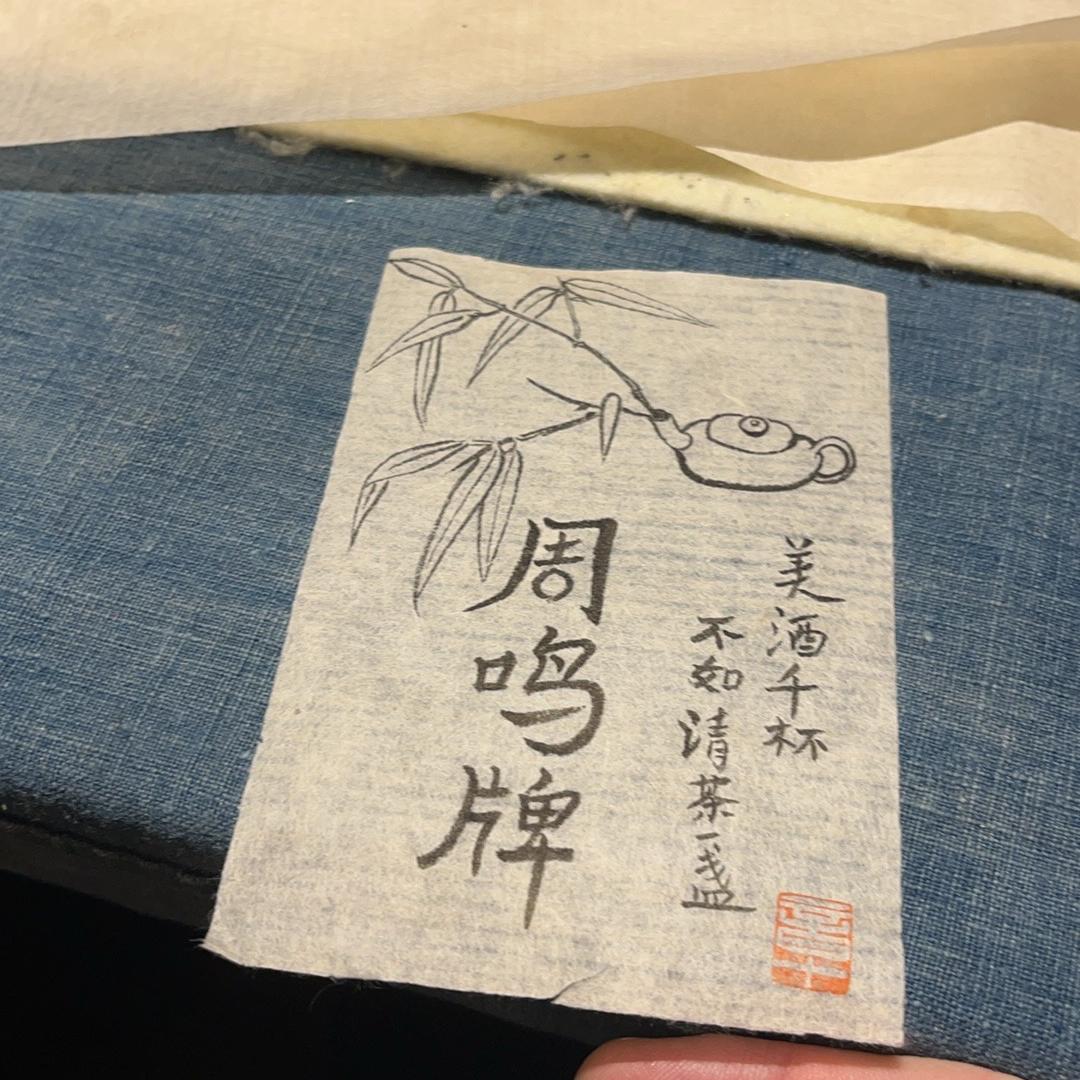 美酒千杯
不如清茶一盏
周鸣牌